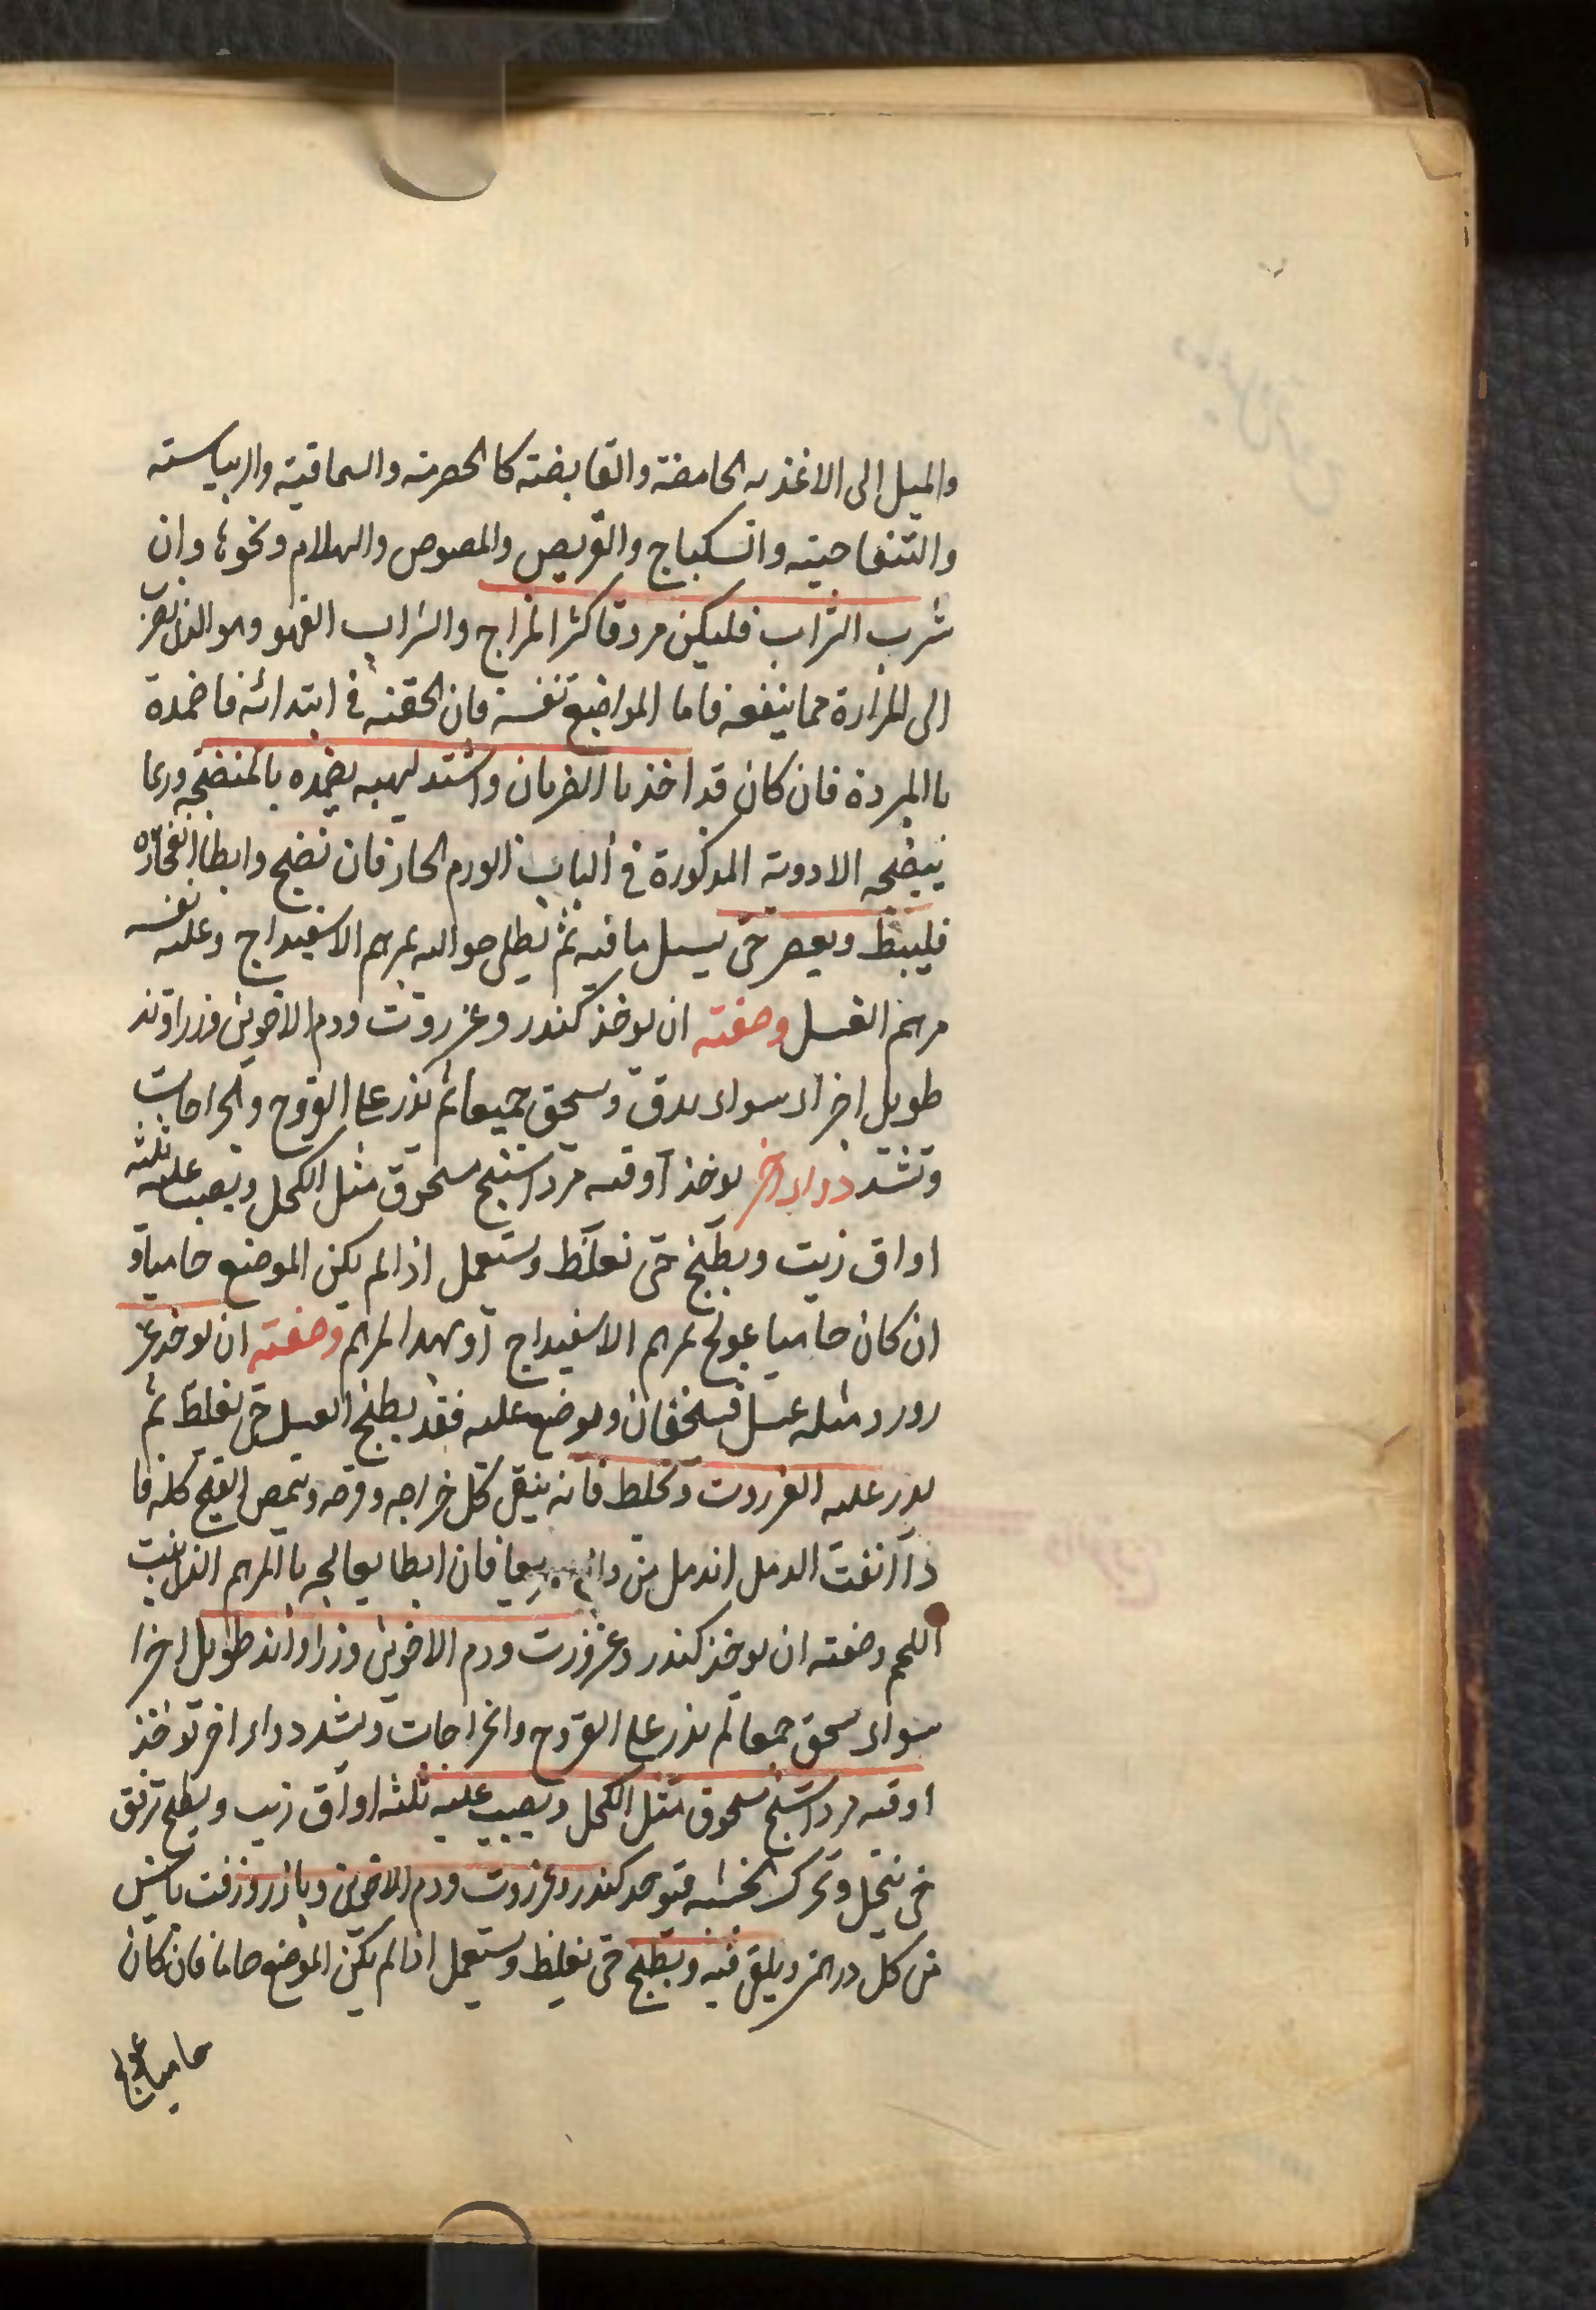 والميل الى الاغذيه الحامضة والقابضته كالحصرمته والسماقيته والريباسته
والتفاحيته والسكباج والقريص والمصوص والهلام ونحوها وان
شرب الشراب فليكن مروقا كثر المزاج والشراب القهو وهو الذى يضرب
الى المرارة مما ينفعه فاما المواضع نفسه فان لحقته فى ابتدائه فاضمدة
باالمبردة فان كان قد اخذ باالضربان واشتد لهيبه يضمده بالمنضجه وربما
ينضجه الادوية المذكورة فى الباب الورم الحار فان نضج وابطا انفجاره
فليبط ويعصر حتى يسيل ما فيه ثم يطلى حواليه بمرهم الاسفيداج وعليه نفسه
مرهم العسل وصفته ان يوخذ كندر وعزروت ودم الاخوين وزراوند
طويل اجزاء سواء يدق ويسحق جميعا ثم يذر على القروح والجراحات
وتشد دواء اخر يوخذ اوقيه مرداسنج مسحوق مثل الكحل ويصب عليه ثلثه
اواق زيت ويطبخ حتى تغلظ ويستعمل اذا لم يكن الموضع حاميا و
ان كان حاميا عولج بمرهم الاسفيداج او بهذا المرهم وصفته ان يوخذ عز
روود مثله عسل فيسحقان ويوضع عليه فقد يطبخ العسل حتى يغلظ ثم
يذر عليه العزروت وتخلط فانه ينقى كل خراجه وقرحه ويمص القيح كله فا
ذا انقت الدمل اندمل من ذاته سريعا فان ابطا يعالجه باالمرهم الذى ينبت
اللحم وصفته ان يوخذ كندر وعزورت ودم الاخوين وزراواند طويل اجزا
سواء يسحق جمعا ثم يذر على القروح والجراحات ويشد دواء اخر توخذ
اوقيه مرداسنج مسحوق مثل الكحل ويصب عليه ثلثه اواق زيت ويطبخ ترفق
حتى ينحل وتحرك بخشبه فتوخذ كندر وعزروت ودم الاخوين وبازرو وزفت يابس
من كل درهمز ويلقى فيه ويطبخ حتى يغلظ ويستعمل اذا لم يكن الموضع حاميا فان كان
حاميا عولج